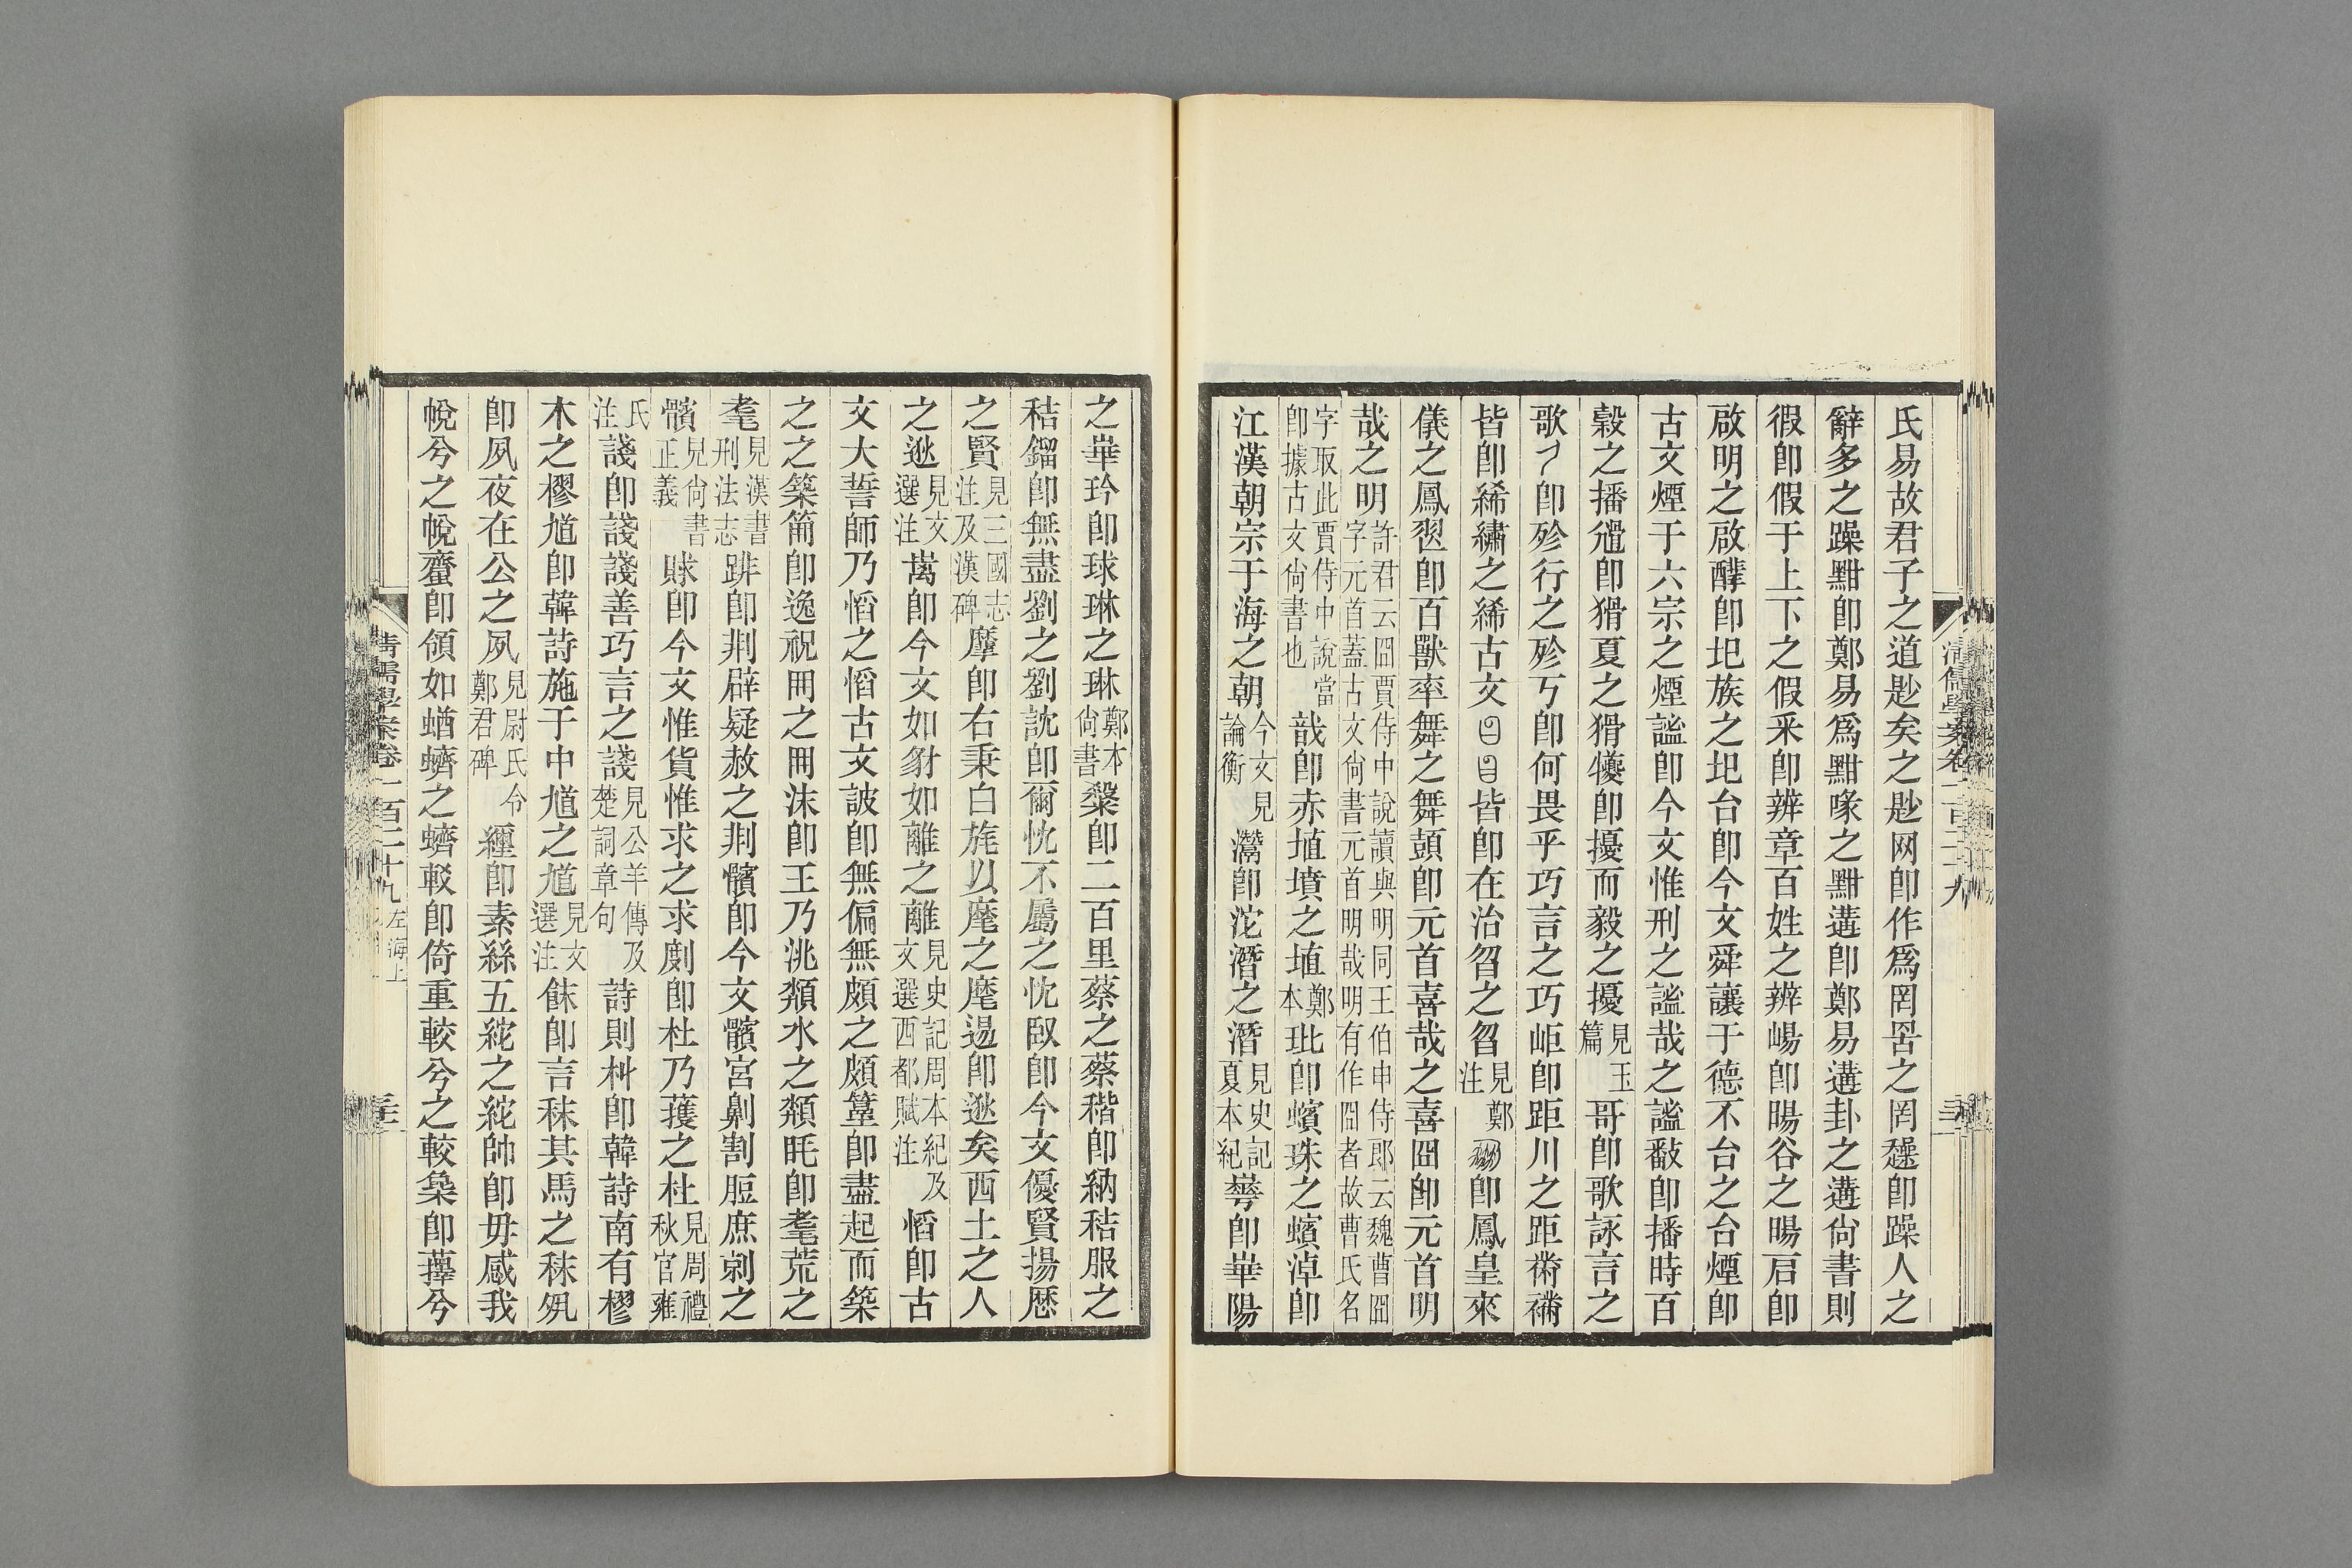 氏易故君子之道尟矣之尟网卽作爲罔罟之罔趮卽躁人之
辭多之躁黚卽鄭易爲黚喙之黚遘卽鄭易遘卦之遘尙書則
徦卽假于上下之假釆卽辨章百姓之辨崵卽暘谷之暘启卽
啟明之啟嶭卽圯族之圯台卽今文舜讓于德不台之台煙卽
古文煙于六宗之煙謐卽今文惟刑之謐哉之謐譒卽播時百
穀之播卽猾夏之猾㹛卽擾而毅之擾見玉篇哥卽歌詠言之
歌卽殄行之殄丂卽何畏乎巧言之巧岠卽距川之距黹黼
皆卽絺繡之絺古文皆卽在治曶之曶見鄭注卽鳳皇來
儀之鳳卽百獸率舞之舞頣卽元首喜哉之喜囧卽元首明
哉之明許君云囧賈侍中說讀與明同王伯申侍郎云魏曹囧字元首蓋古文尙書元首明哉明有作囧者故曹氏名
字取此賈侍中說當卽據古文尙書也戠卽赤埴墳之埴鄭本玭卽蠙珠之蠙淖卽
江漢朝宗于海之朝今文見論衡灊卽沱潛之潛見史記夏本紀崋卽崋陽
之崋玪卽球琳之琳鄭本尙書㯃卽二百里蔡之蔡稭卽納秸服之
秸鎦卽無盡劉之劉訦卽爾忱不屬之忱臤卽今文優賢揚歷
之賢見三國志注及漢碑摩卽右秉白旄以麾之麾逷卽逖矣西土之人
之逖見文選注离卽今文如豺如離之離見史記周本紀及文選西都賦注慆卽古
文大誓師乃慆之慆古文詖卽無偏無頗之頗䇡卽盡起而築
之之築䇛卽逸祝冊之冊沬卽王乃洮頮水之頮眊卽耄荒之
耄見漢書刑法志跸卽剕辟疑赦之剕髕卽今文髕宮劓割脰庶剠之
髕見尙書正義賕卽今文惟貨惟求之求㓃卽杜乃擭之杜見周禮秋官雍
氏注諓卽諓諓善巧言之諓見公羊傳及楚詞章句詩則朻卽韓詩南有樛
木之樛馗卽韓詩施于中馗之馗見文選注餗卽言秣其馬之秣夙
卽夙夜在公之夙見尉氏令鄭君碑纑卽素絲五紽之紽帥卽毋感我
帨兮之帨齏卽領如蝤蠐之蠐輢卽倚重較兮之較枲卽蘀兮
清儒學案卷一百二十九 左海上